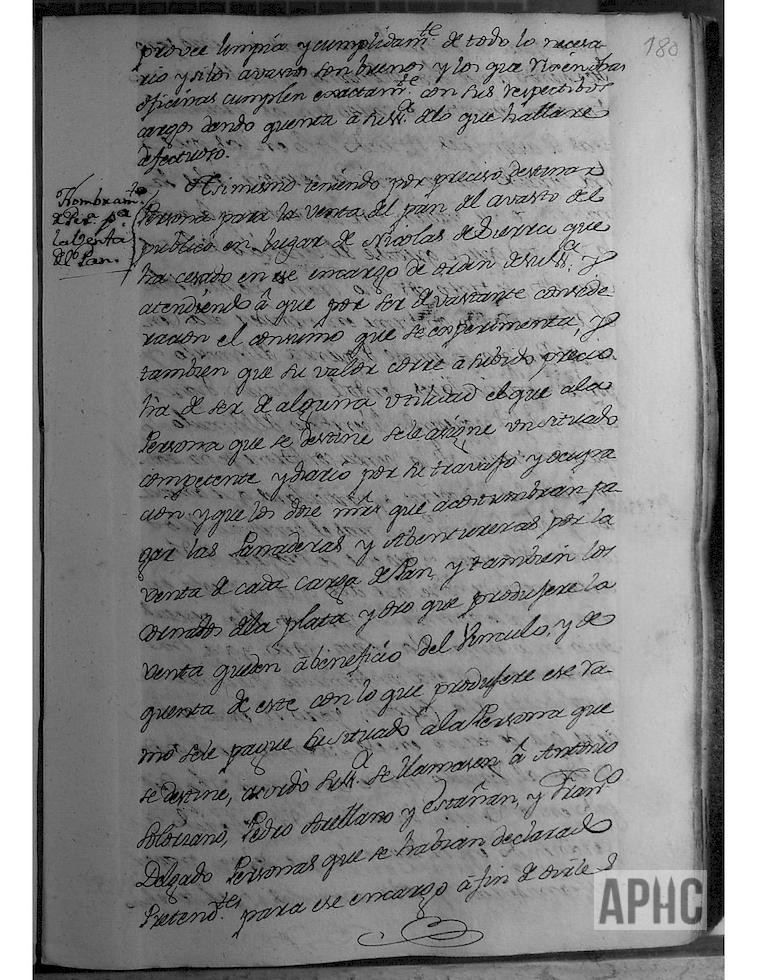 180
provee limpia y cumplidam.te de todo lo necesa
rio y si los avastos son buenos y los que sirven
oficinas cumplen exactam.te con sus respectibos
cargos dando quenta á su S.a delo que hallare
defectuoso.
Nombram.to
de Per.a p.a
la Venta
del Pan.
Asimismo teniendo por preciso destinar
Persona para la venta del pan del avasto del
publico en lugar de Nicolas de Sierra que
ha cesado en ese encargo de orden de su S.a y
atendiendo â que por ser de vastante conside
racion el consumo que se experimenta, y
tambien que su valor corre a subido precio
ha de ser de alguna utilidad el que ala
Persona que se destine sele asigne un situado
competente y diario por su travajo y ocupa
cion y que los doze mrs que acostumbran pa
gar las Panaderas y Abentureras por la
venta de cada carga de Pan, y tambien los
dela plata y oro que produsere la
venta queden á beneficio del Vinculo, y de
quenta de este con lo que produsere ese Ra
mo sele pague su situado ala Persona que
se destine, acordo su S.a se llamasen â Antonio
Solorzano, Pedro Arellano y Estañan, y Fran.co
Delgado Personas que se habian declarado
Pretend.tes para ese encargo á fin de oirles
APHC